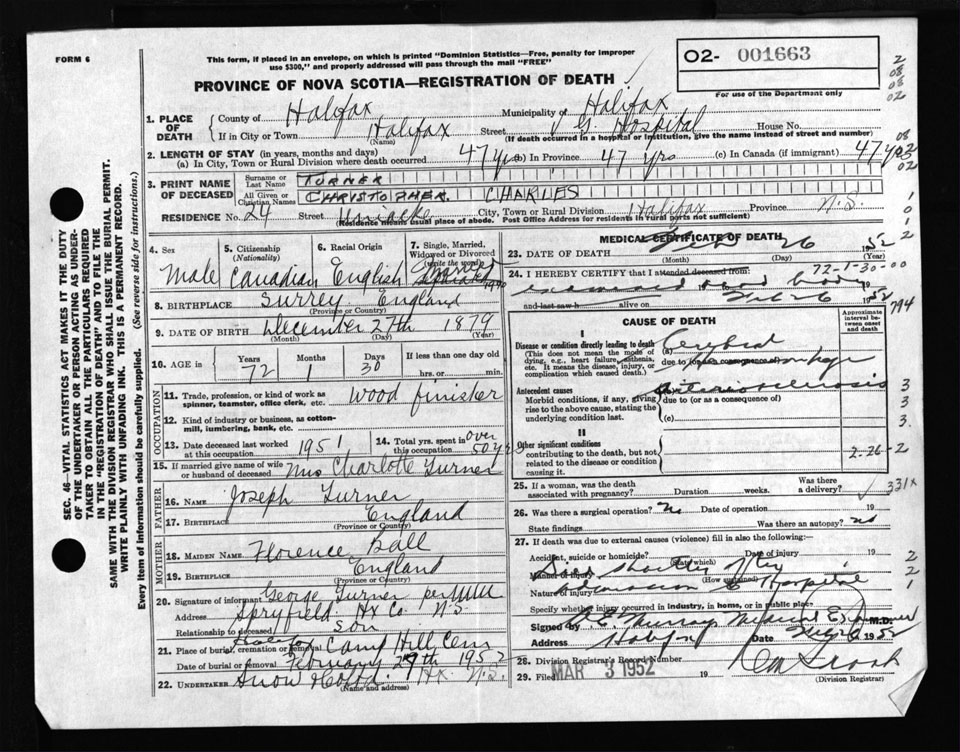 FORM 6
This form, if placed in an envelope, on which is printed "Dominion Statistics—Free, penalty for improper
use $300," and properly addressed will pass through the mail "FREE"
O2- 001663
For use of the Department only
PROVINCE OF NOVA SCOTIA—REGISTRATION OF DEATH
2
08
08
02
1. PLACE OF DEATH
County of Halifax Municipality of Halifax
If in City or Town Halifax Street V G Hospital House No.
(Name) (If death occurred in a hospital or institution, give the name instead of street and number)
2. LENGTH OF STAY (in years, months and days)
(a) In City, Town or Rural Division where death occurred 47 yrs (b) In Province 47 yrs (c) In Canada (if immigrant) 47 yrs
3. PRINT NAME OF DECEASED
Surname or Last Name TURNER
All Given or Christian Names CHRISTOPHER CHARLES
RESIDENCE No. 24 Street Uniacke City, Town or Rural Division Halifax Province N.S.
(Residence means usual place of abode. Post Office Address for residents in rural parts not sufficient)
4. Sex Male
5. Citizenship (Nationality) Canadian
6. Racial Origin English
7. Single, Married, Widowed or Divorced (write the word) Married
8. BIRTHPLACE Surrey England
(Province or Country)
9. DATE OF BIRTH December 27th 1879
(Month) (Day) (Year)
10. AGE Years 72 Months 1 Days 30 If less than one day old hrs. or min.
11. Trade, profession, or kind of work as spinner, teamster, office clerk, etc. wood finister
12. Kind of industry or business, as cotton-mill, lumbering, bank, etc.
13. Date deceased last worked at this occupation 1951
14. Total yrs. spent in this occupation over 50 yrs
15. If married give name of wife or husband of deceased Mrs Charlotte Turner
FATHER
16. NAME Joseph Turner
17. BIRTHPLACE England
(Province or Country)
MOTHER
18. MAIDEN NAME Florence Ball
19. BIRTHPLACE England
(Province or Country)
20. Signature of informant George Turner per
Address Spryfield Hx Co. N.S.
Relationship to deceased son
21. Place of burial, cremation or removal Camp Hill Cem
Date of burial or removal February 29th 1952
22. UNDERTAKER Snow & Co Ltd. Hx N.S.
(Name and address)
MEDICAL CERTIFICATE OF DEATH
23. DATE OF DEATH Feb 26 1952
(Month) (Day)
72-1-30-00
24. I HEREBY CERTIFY that I attended deceased from:
examined dead body
and last saw h alive on Feb 26 1952
794
CAUSE OF DEATH
Approximate interval between onset and death
I
Disease or condition directly leading to death
(This does not mean the mode of dying, e.g., heart failure, asthenia, etc. It means the disease, injury, or complication which caused death.)
(a) Cerebral
due to (or as a consequence of) hemorrhage
Antecedent causes
Morbid conditions, if any, giving rise to the above cause, stating the underlying condition last.
(b) Arteriosclerosis
due to (or as a consequence of)
(c)
3
3
3.
II
Other significant conditions
contributing to the death, but not related to the disease or condition causing it.
2-26-2
25. If a woman, was the death associated with pregnancy? Duration weeks. Was there a delivery?
331x
26. Was there a surgical operation? No Date of operation 19
State findings Was there an autopsy? No
27. If death was due to external causes (violence) fill in also the following:—
Accident, suicide or homicide? Date of injury 19
(State which)
Manner of injury Died shortly after
(How sustained)
Nature of injury admission to Hospital
Specify whether injury occurred in industry, in home, or in public place
Signed by Murray Medical Examiner M.D.
Address Halifax Date 1952
28. Division Registrar's Record Number
29. Filed MAR 3 1952 19
(Division Registrar)
SEC. 46—VITAL STATISTICS ACT MAKES IT THE DUTY
OF THE UNDERTAKER OR PERSON ACTING AS UNDER-
TAKER TO OBTAIN ALL THE PARTICULARS REQUIRED
IN THE "REGISTRATION OF DEATH" AND TO FILE THE
SAME WITH THE DIVISION REGISTRAR WHO SHALL ISSUE THE BURIAL PERMIT.
WRITE PLAINLY WITH UNFADING INK. THIS IS A PERMANENT RECORD.
Every item of information should be carefully supplied. (See reverse side for instructions.)